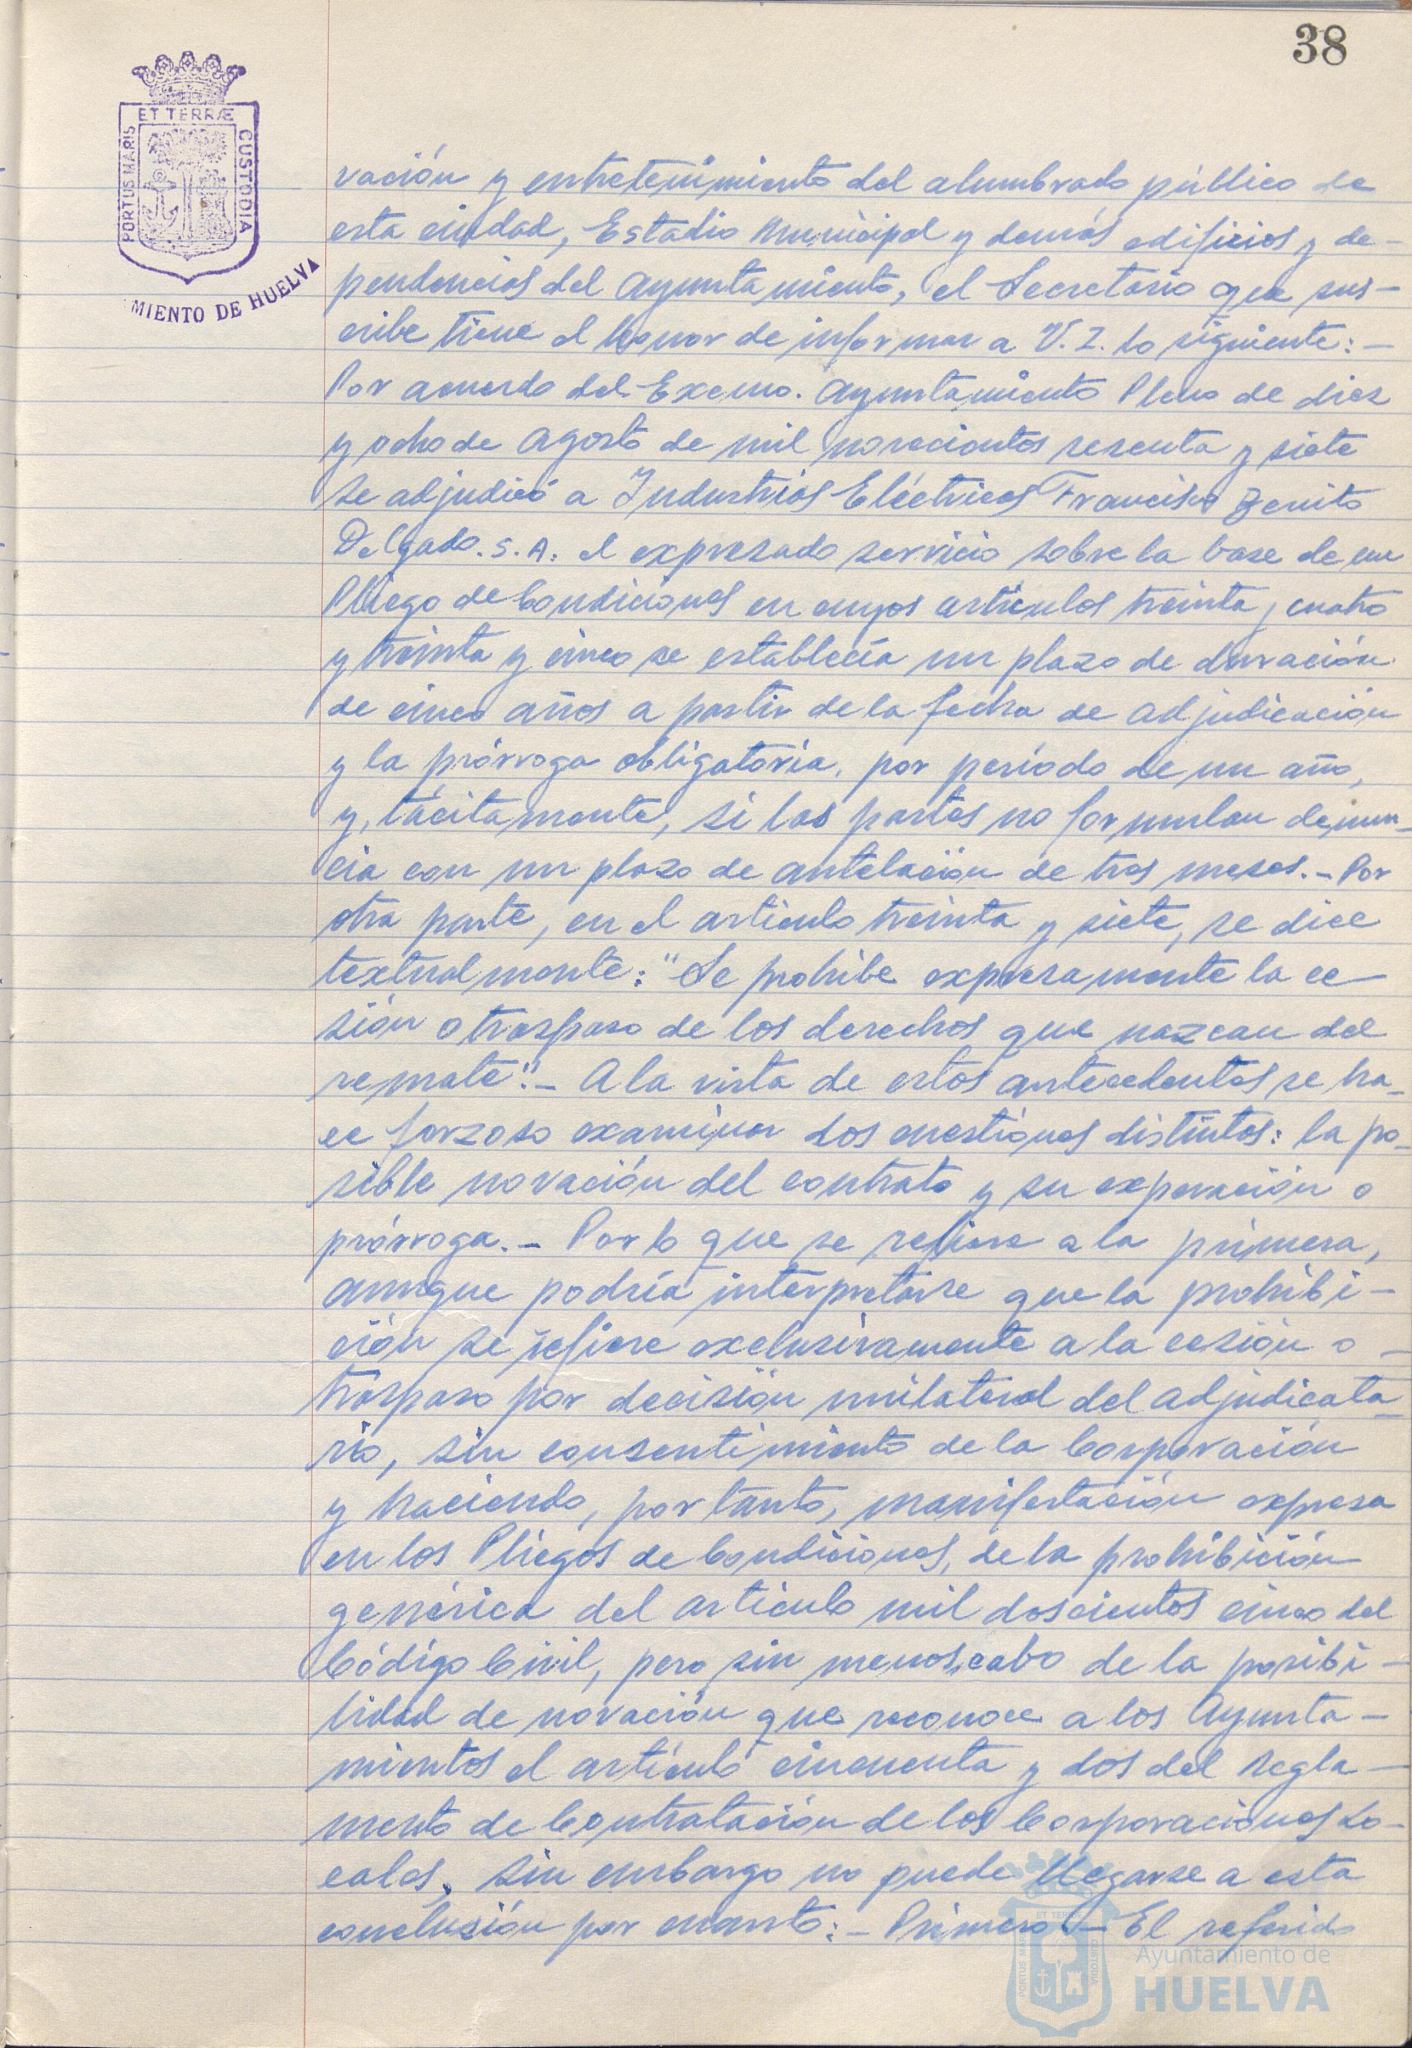 38
ET TERRÆ
PORTUS MARIS
CUSTODIA
MIENTO DE HUELVA
vación y entretenimiento del alumbrado público de
esta ciudad, Estadio Municipal y demás edificios y de-
pendencias del Ayuntamiento, el Secretario que sus-
cribe tiene el honor de informar a V.I. lo siguiente:-
Por acuerdo del Excmo. Ayuntamiento Pleno de diez
y ocho de Agosto de mil novecientos sesenta y siete
se adjudicó a Industrias Eléctricas Francisco Benito
Delgado. S.A. el expresado servicio sobre la base de un
Pliego de Condiciones en cuyos artículos treinta y cuatro
y treinta y cinco se establecía un plazo de duración
de cinco años a partir de la fecha de adjudicación
y la prórroga obligatoria, por período de un año,
y, tácitamente, si las partes no formulan denun-
cia con un plazo de antelación de tres meses.- Por
otra parte, en el artículo treinta y siete, se dice
textualmente: "Se prohibe expresamente la ce-
sión o traspaso de los derechos que nazcan del
remate".- A la vista de estos antecedentes se ha-
ce forzoso examinar dos cuestiones distintas: la po-
sible novación del contrato y su expiración o
prórroga.- Por lo que se refiere a la primera,
aunque podría interpretarse que la prohibi-
ción se refiere exclusivamente a la cesión o -
traspaso por decisión unilateral del adjudicata-
rio, sin consentimiento de la Corporación
y haciendo, por tanto, manifestación expresa
en los Pliegos de Condiciones, de la prohibición
genérica del artículo mil doscientos cinco del
Código Civil, pero sin menoscabo de la posibi-
lidad de novación que reconoce a los Ayunta-
mientos el artículo cincuenta y dos del Regla-
mento de Contratación de las Corporaciones Lo-
cales, sin embargo no puede llegarse a esta
conclusión por cuanto:- Primero.- El referido
Ayuntamiento de
HUELVA